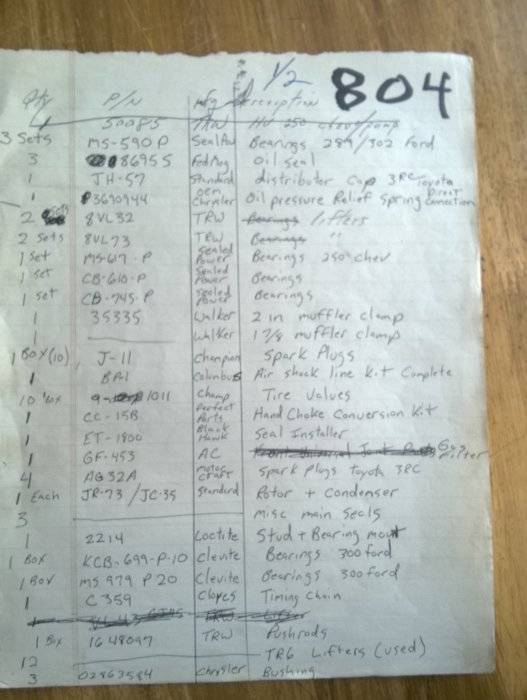 1/2 804
Qty P/N mfg Description
4 50085 TRW HV 250 chev/pump
3 Sets MS-590P Seal Pwr Bearings 289/302 Ford
3 8695S Fed Mog Oil seal
1 JH-57 Standard distributer Cap 3RC Toyota
1 P3690944 oem Chrysler Oil pressure Relief Spring Direct Connection
2 sets 8VL32 TRW lifters
2 Sets 8VL73 TRW "
1 Set MS-617-P Sealed Power Bearings 250 chev
1 set CB-610-P Sealed Power Bearings
1 set CB-745-P Sealed Power Bearings
1 35335 Walker 2 in muffler clamp
1 Walker 1 7/8 muffler clamp
1 Box (10) J-11 Champion Spark Plugs
1 BA1 Columbus Air shock line Kit Complete
10 Box 1011 Champ Tire Valves
1 CC-15B Perfect Parts Hand Choke Conversion Kit
1 ET-1800 Black Hawk Seal Installer
1 GF-453 AC Gas Filter
4 AG32A motor craft Spark plugs Toyota 3RC
1 Each JR-73/JC-35 Standard Rotor + Condenser
3 misc main seals
1 2214 Loctite Stud + Bearing mount
1 Box KCB-699-P-10 Clevite Bearings 300 ford
1 Box MS 979 P 20 Clevite Bearings 300 ford
1 C359 Cloyes Timing Chain
1 Box 1648097 TRW Pushrods
12 TR6 Lifters (used)
3 02863584 Chrysler Bushing